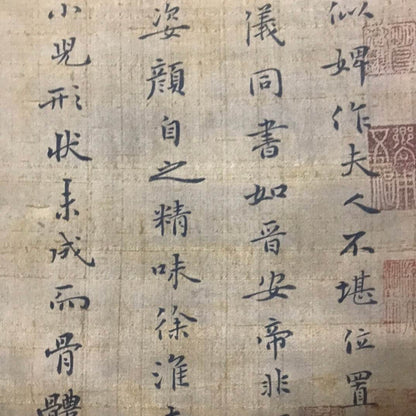 似婢作夫人不堪位置
儀同書如晉安帝非
姿顏自之精味徐淮
小兒形状未成而骨體